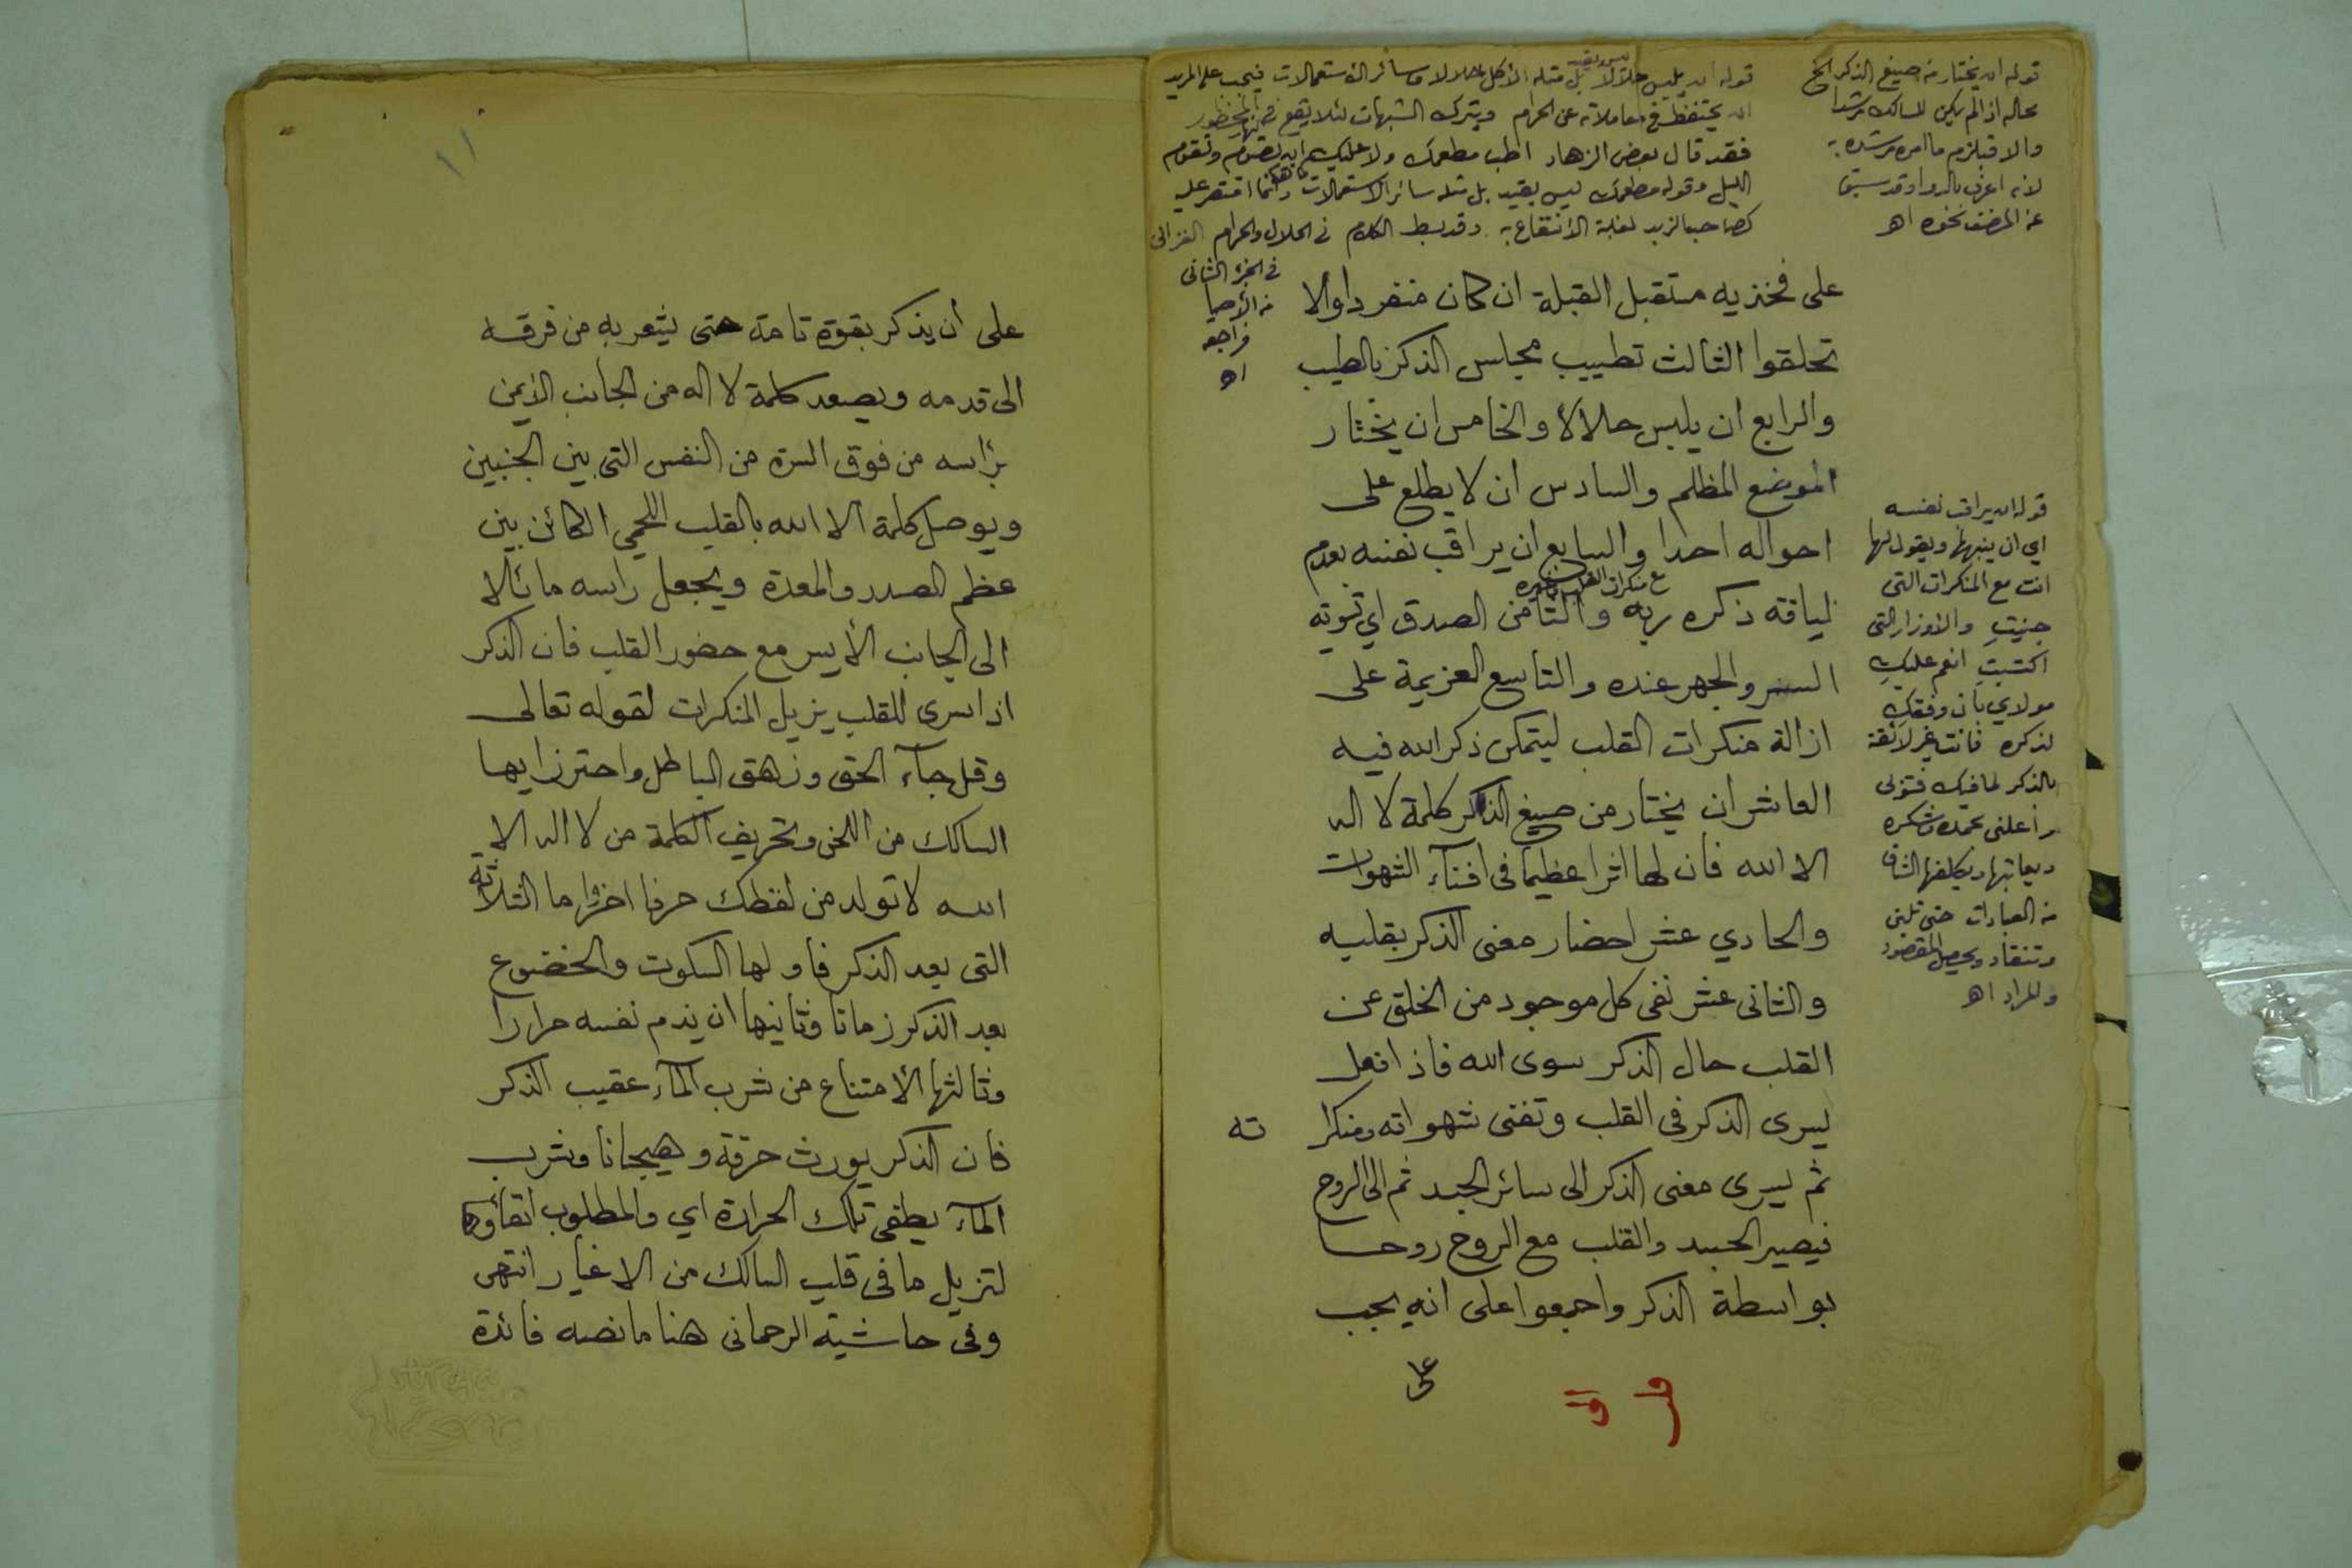 قوله ان يختار من صيغ الذكر الخ
محله اذا لم يكن للسالك مرشدا
والا فيلزم ما امره مرشده به
لانه اعرف بالدواء وقد سبق
عن المصنف نحوه اه
قوله ان يلبس حلالا ليس بقيد بل مثله الأكل حلالا وسائر الاستعمالات فيجب على المريد
ان يحتفظ في معاملاته عن الحرام ويترك الشبهات لئلا يقع في المحظور
فقد قال بعض الزهاد اطب مطعمك ولا عليك ان تصوم وتقوم
الليل وقوله مطعمك ليس بقيد بل مثله سائر الاستعمالات وانما اقتصر عليه
كصاحب الزبد لغلبة الانتفاع به وقد بسط الكلام في الحلال والحرام الغزالى
في الجزء الثانى
من الأحيا
فراجعه
اه
على فخذيه مستقبل القبلة ان كان منفردا والا
تحلقوا الثالث تطييب مجلس الذكر بالطيب
والرابع ان يلبس حلالاً والخامس ان يختار
الموضع المظلم والسادس ان لا يطلع على
احواله احدا والسابع ان يراقب نفسه بعدم
لياقة ذكره ربه والثامن الصدق اي تسوية
السر والجهر عنده والتاسع العزيمة على
ازالة منكرات القلب ليتمكن ذكر الله فيه
العاشر ان يختار من صيغ الذكر كلمة لا اله
الا الله فان لها اثرا عظيما فى افنآء الشهوات
والحادي عشر احضار معنى الذكر بقلبه
والثانى عشر نفى كل موجود من الخلق عن
القلب حال الذكر سوى الله فاذا فعل
يسرى الذكر فى القلب وتفنى شهواته ومنكرا ته
ثم يسرى معنى الذكر الى سائر الجسد ثم الى الروح
فيصير الجسد والقلب مع الروح روحا
بواسطة الذكر واجمعوا على انه يجب
على
قوله ان يراقب نفسه
اي ان ينبهها ويقول لها
انت مع المنكرات التى
جنيتِ والاوزار التى
اكتسبتِ انعم عليكِ
مولاي بأن وفقكِ
لذكره فانت غير لائقة
بالذكر لما فيك
بحمده وشكره
ويعاتبها ويكلفها الشاق
من العبادات حتى تلين
وتنقاد ويحصل المقصود
والمراد اه
١١
على أن يذكر بقوة تامة حتى يشعر به من فرقه
الى قدمه ويصعد كلمة لا اله من الجانب الأيمن
برأسه من فوق السرة من النفس التى بين الجنبين
ويوصل كلمة الا الله بالقلب اللحمي الكائن بين
عظم الصدر والمعدة ويجعل راسه مائلا
الى الجانب الأيسر مع حضور القلب فان الذكر
اذا سرى للقلب يزيل المنكرات لقوله تعالى
وقل جآء الحق وزهق الباطل واحترز ايها
السالك من اللحن وتحريف الكلمة من لا اله الا
الله لا تولد من لفظك حرفا اخر واما الثلاثة
التى بعد الذكر فاولها السكوت والخضوع
بعد الذكر زمانا وثانيها ان يذم نفسه مرارا
وثالثها الامتناع من شرب المآء عقيب الذكر
فان الذكر يورث حرقة وهيجانا وشرب
المآء يطفى تلك الحرارة اي والمطلوب ابقاؤها
لتزيل ما فى قلب السالك من الاغيار انتهى
وفى حاشية الرحمانى هنا ما نصه فائدة